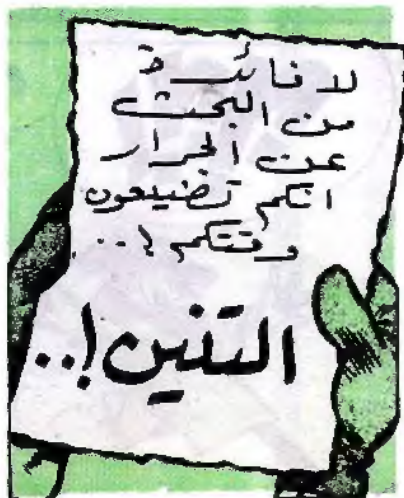 لا فائدة
من البحث
عن الجرار
انكم تضيعون
وقتكم !..
التنين !..